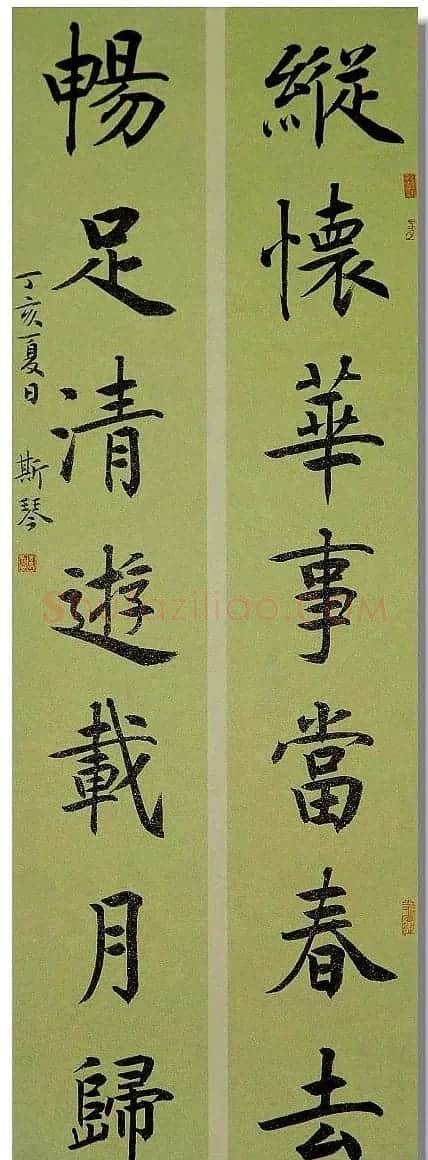 縱懷華事當春去
暢足清遊載月歸
丁亥夏日 斯琴
Shufaziliao.com